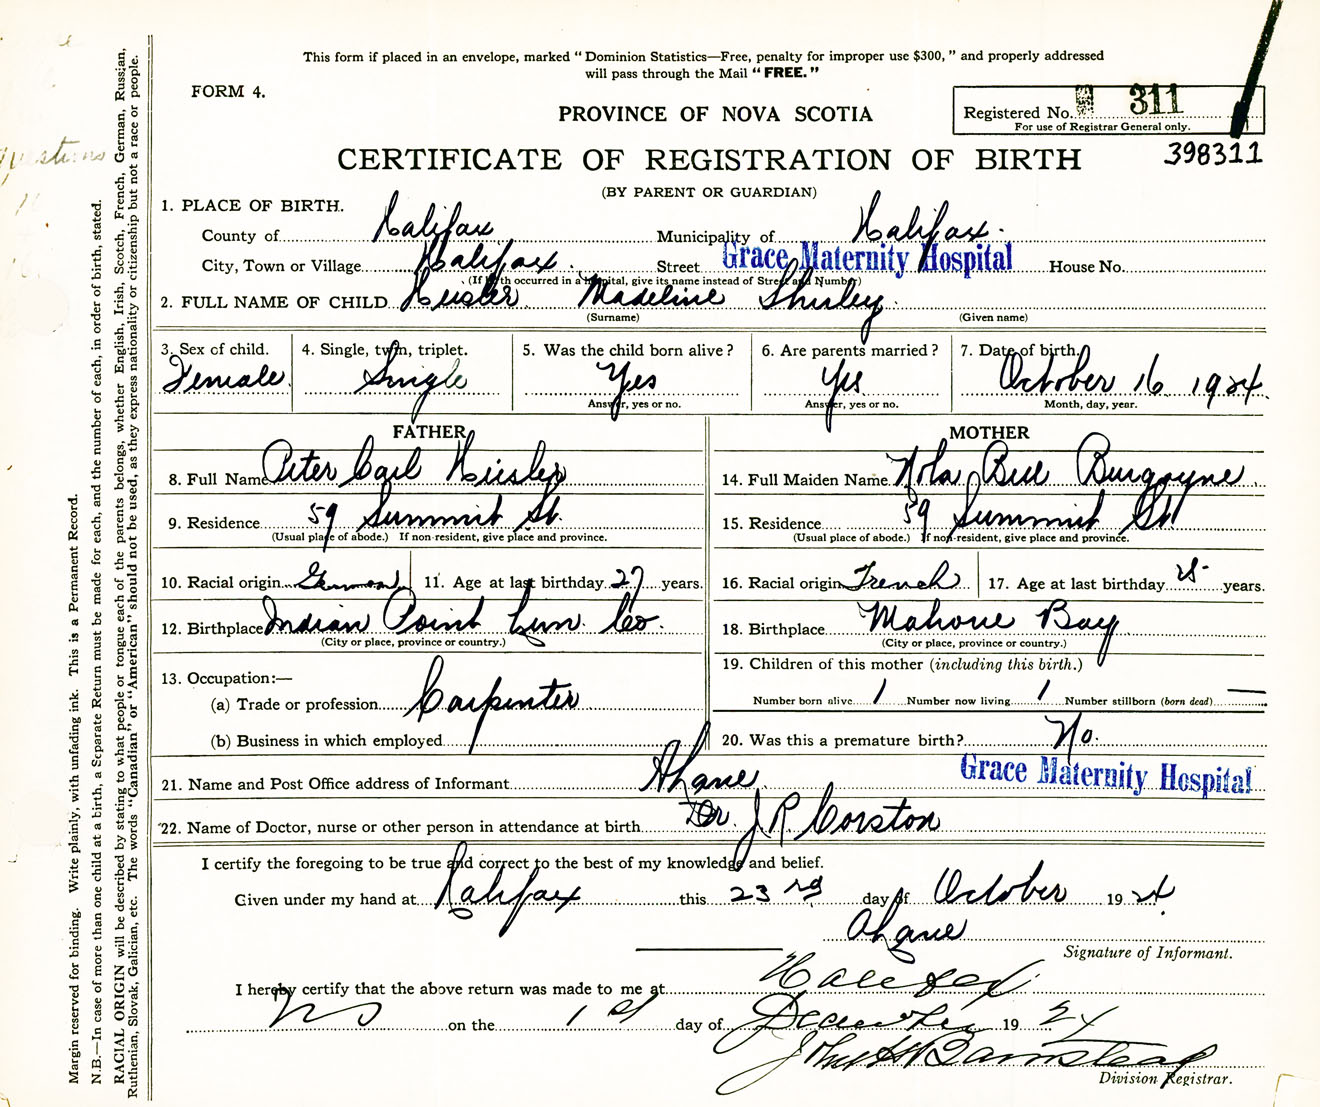 This form if placed in an envelope, marked "Dominion Statistics—Free, penalty for improper use $300," and properly addressed
will pass through the Mail "FREE."
FORM 4.
Registered No. 311
For use of Registrar General only.
PROVINCE OF NOVA SCOTIA
398311
CERTIFICATE OF REGISTRATION OF BIRTH
(BY PARENT OR GUARDIAN)
1. PLACE OF BIRTH.
County of Halifax Municipality of Halifax.
City, Town or Village Halifax. Street Grace Maternity Hospital House No.
(If birth occurred in a hospital, give its name instead of Street and Number)
2. FULL NAME OF CHILD Heisler Madeline Shirley.
(Surname) (Given name)
3. Sex of child. 4. Single, twin, triplet. 5. Was the child born alive? 6. Are parents married? 7. Date of birth.
Female. Single Yes Yes October 16 1924.
Answer, yes or no. Answer, yes or no. Month, day, year.
FATHER MOTHER
8. Full Name Peter Carl Heisler 14. Full Maiden Name Nola Bell Burgoyne.
9. Residence 59 Summit St. 15. Residence 59 Summit St
(Usual place of abode.) If non-resident, give place and province. (Usual place of abode.) If non-resident, give place and province.
10. Racial origin German 11. Age at last birthday 27 years. 16. Racial origin French 17. Age at last birthday 25 years.
12. Birthplace Indian Point Lun. Co. 18. Birthplace Mahone Bay
(City or place, province or country.) (City or place, province or country.)
13. Occupation:—
19. Children of this mother (including this birth.)
(a) Trade or profession Carpenter Number born alive 1 Number now living 1 Number stillborn (born dead) —
(b) Business in which employed 20. Was this a premature birth? No.
21. Name and Post Office address of Informant A Lane Grace Maternity Hospital
22. Name of Doctor, nurse or other person in attendance at birth Dr J. R. Corston
I certify the foregoing to be true and correct to the best of my knowledge and belief.
Given under my hand at Halifax this 23rd day of October 1924.
A Lane
Signature of Informant.
I hereby certify that the above return was made to me at Halifax
NS on the 1st day of December 1924
John H Barnstead
Division Registrar.
Margin reserved for binding. Write plainly, with unfading ink. This is a Permanent Record.
N.B.—In case of more than one child at a birth, a Separate Return must be made for each, and the number of each, in order of birth, stated.
RACIAL ORIGIN will be described by stating to what people or tongue each of the parents belongs, whether English, Irish, Scotch, French, German, Russian,
Ruthenian, Slovak, Galician, etc. The words "Canadian" or "American" should not be used, as they express nationality or citizenship but not a race or people.